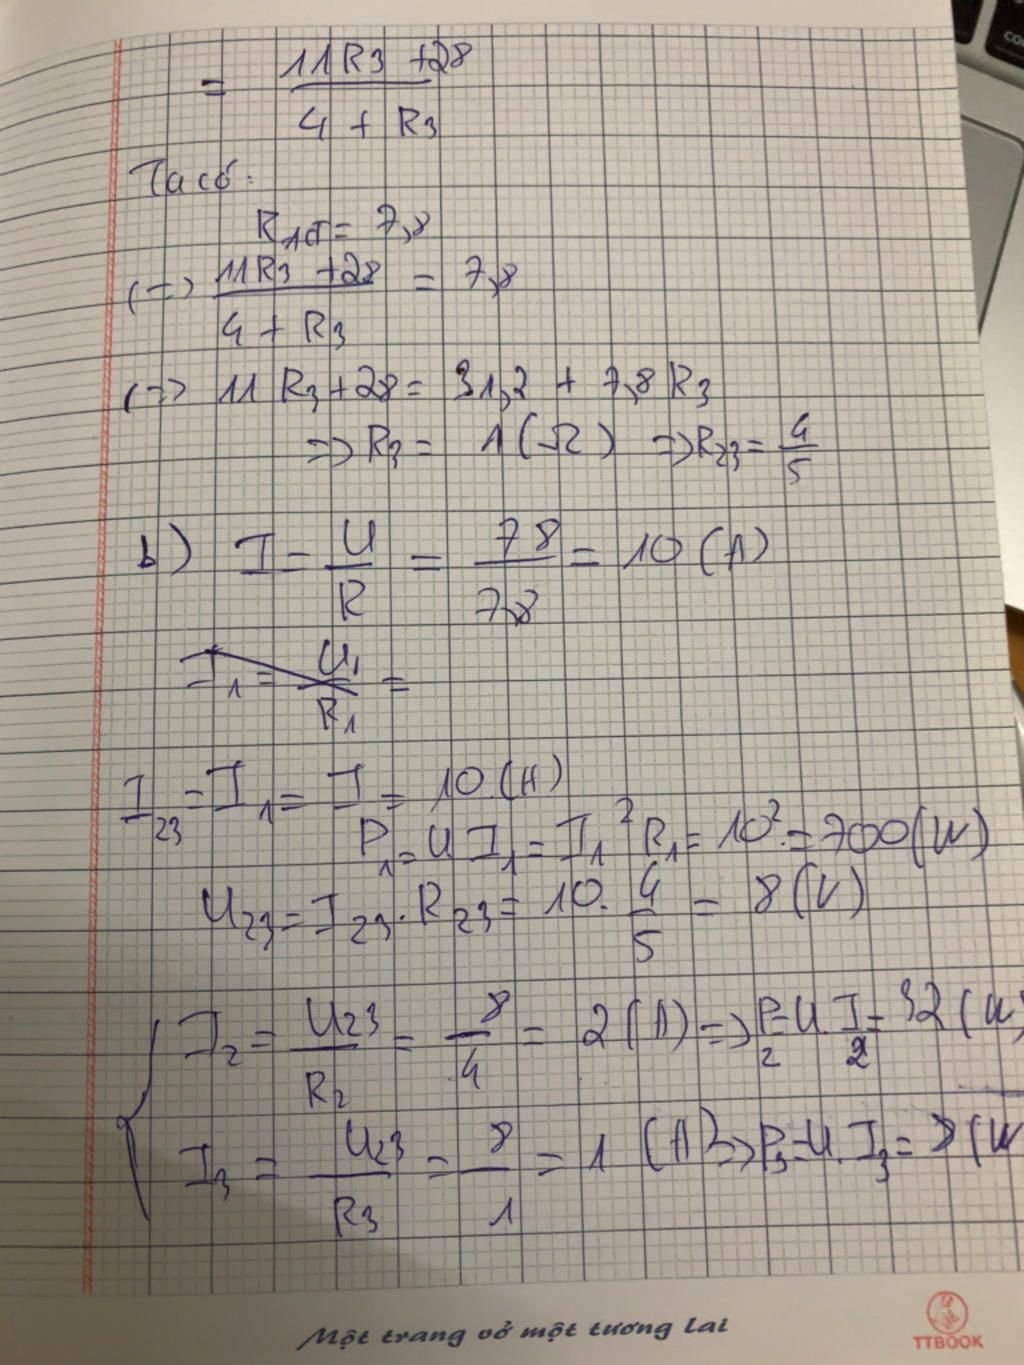 = (11R3 + 28) / (4 + R3)
Ta có:
R_tđ = 7,8
(=>) (11R3 + 28) / (4 + R3) = 7,8
(=>) 11 R3 + 28 = 31,2 + 7,8 R3
=> R3 = 1 (Ω) => R23 = 4/5
b) I = U/R = 78/7,8 = 10 (A)
I1 = U1/R1 =
I23 = I1 = I = 10 (A)
P1 = U I1 = I1² R1 = 10². = 700 (W)
U23 = I23 . R23 = 10. 4/5 = 8 (V)
I2 = U23/R2 = 8/4 = 2 (A) => P2 = U. I2 = 32 (W)
I3 = U23/R3 = 8/1 = 1 (A) => P3 = U. I3 = 8 (W
Một trang vở một tương lai
TTBOOK